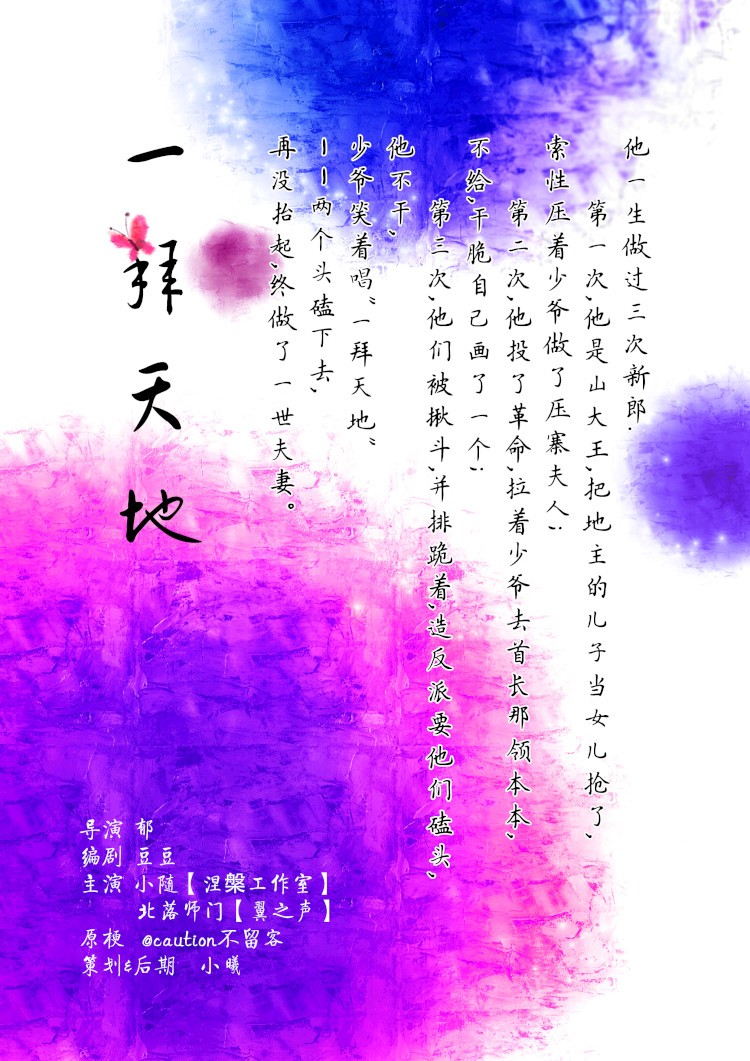 他一生做过三次新郎.
第一次、他是山大王、把地主的儿子当女儿抢了、
索性压着少爷做了压寨夫人；
第二次、他投了革命、拉着少爷去首长那领本本、
不给、干脆自己画了一个；
第三次、他们被揪斗、并排跪着、造反派要他们磕头、
他不干、
少爷笑着唱“一拜天地”
——两个头磕下去、
再没抬起、终做了一世夫妻。
一拜天地
导演 郁
编剧 豆豆
主演 小随【涅槃工作室】
北落师门【翼之声】
原梗 @caution不留客
策划&后期 小曦